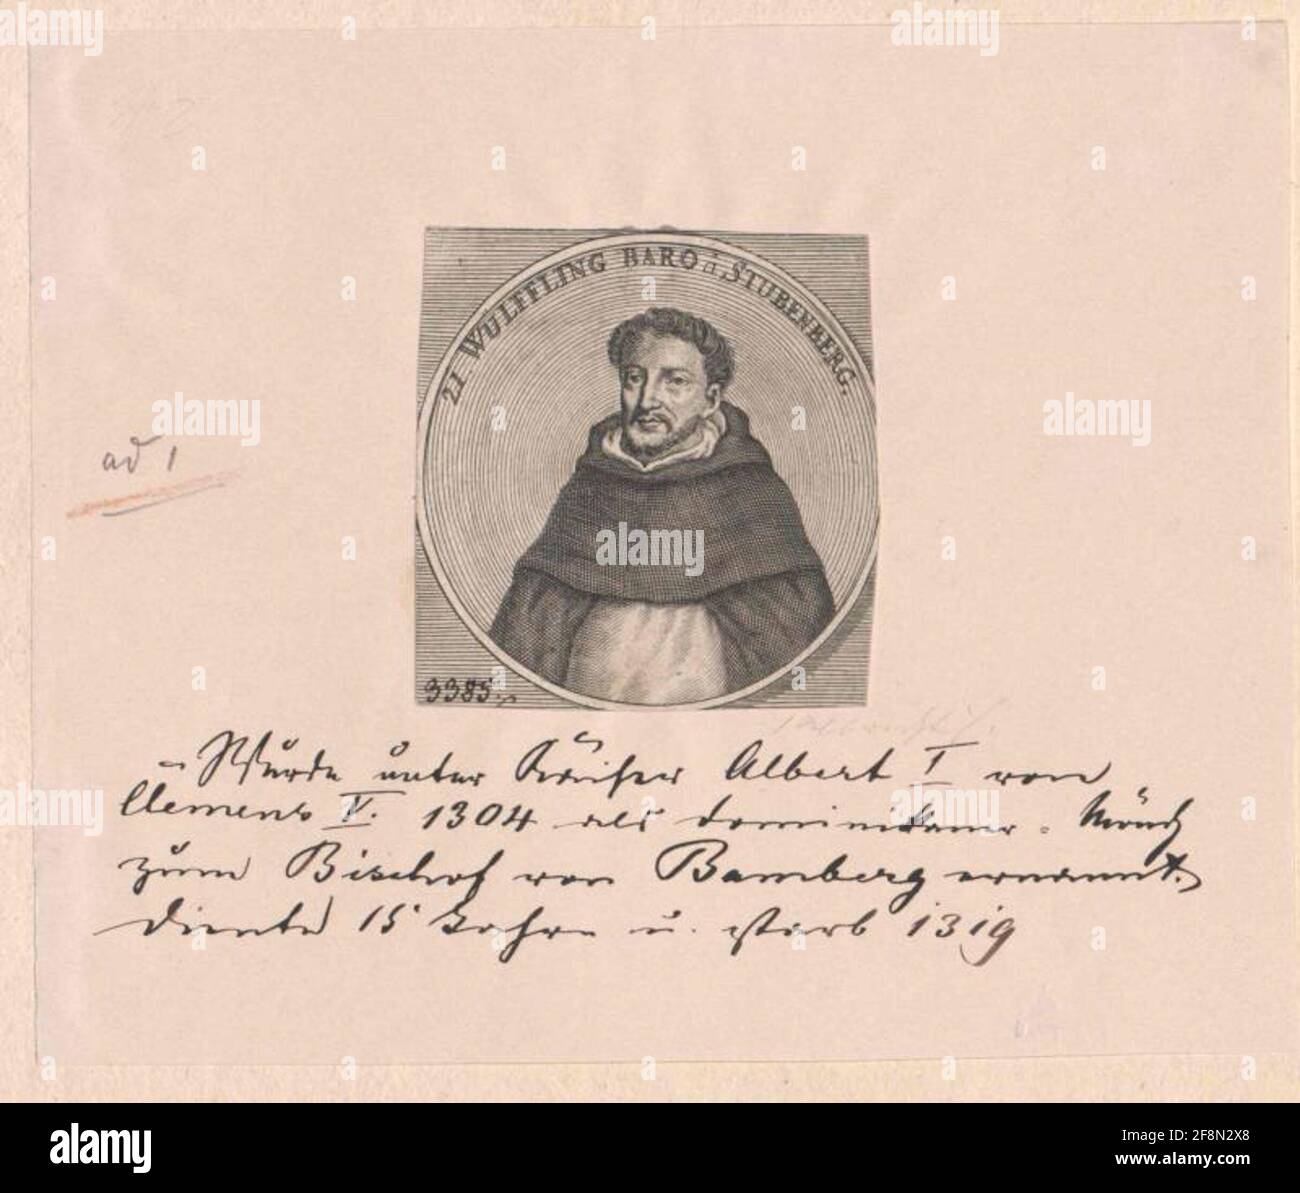 21 WULFFLING BARO à STUBENBERG.
ad 1
3385
Wurde unter Kaiser Albert I von
Clemens V. 1304 als Dominikaner-Mönch
zum Bischof von Bamberg ernannt.
Diente 15 Jahre u. starb 1319
alamy
Image ID: 2F8N2X8
www.alamy.com